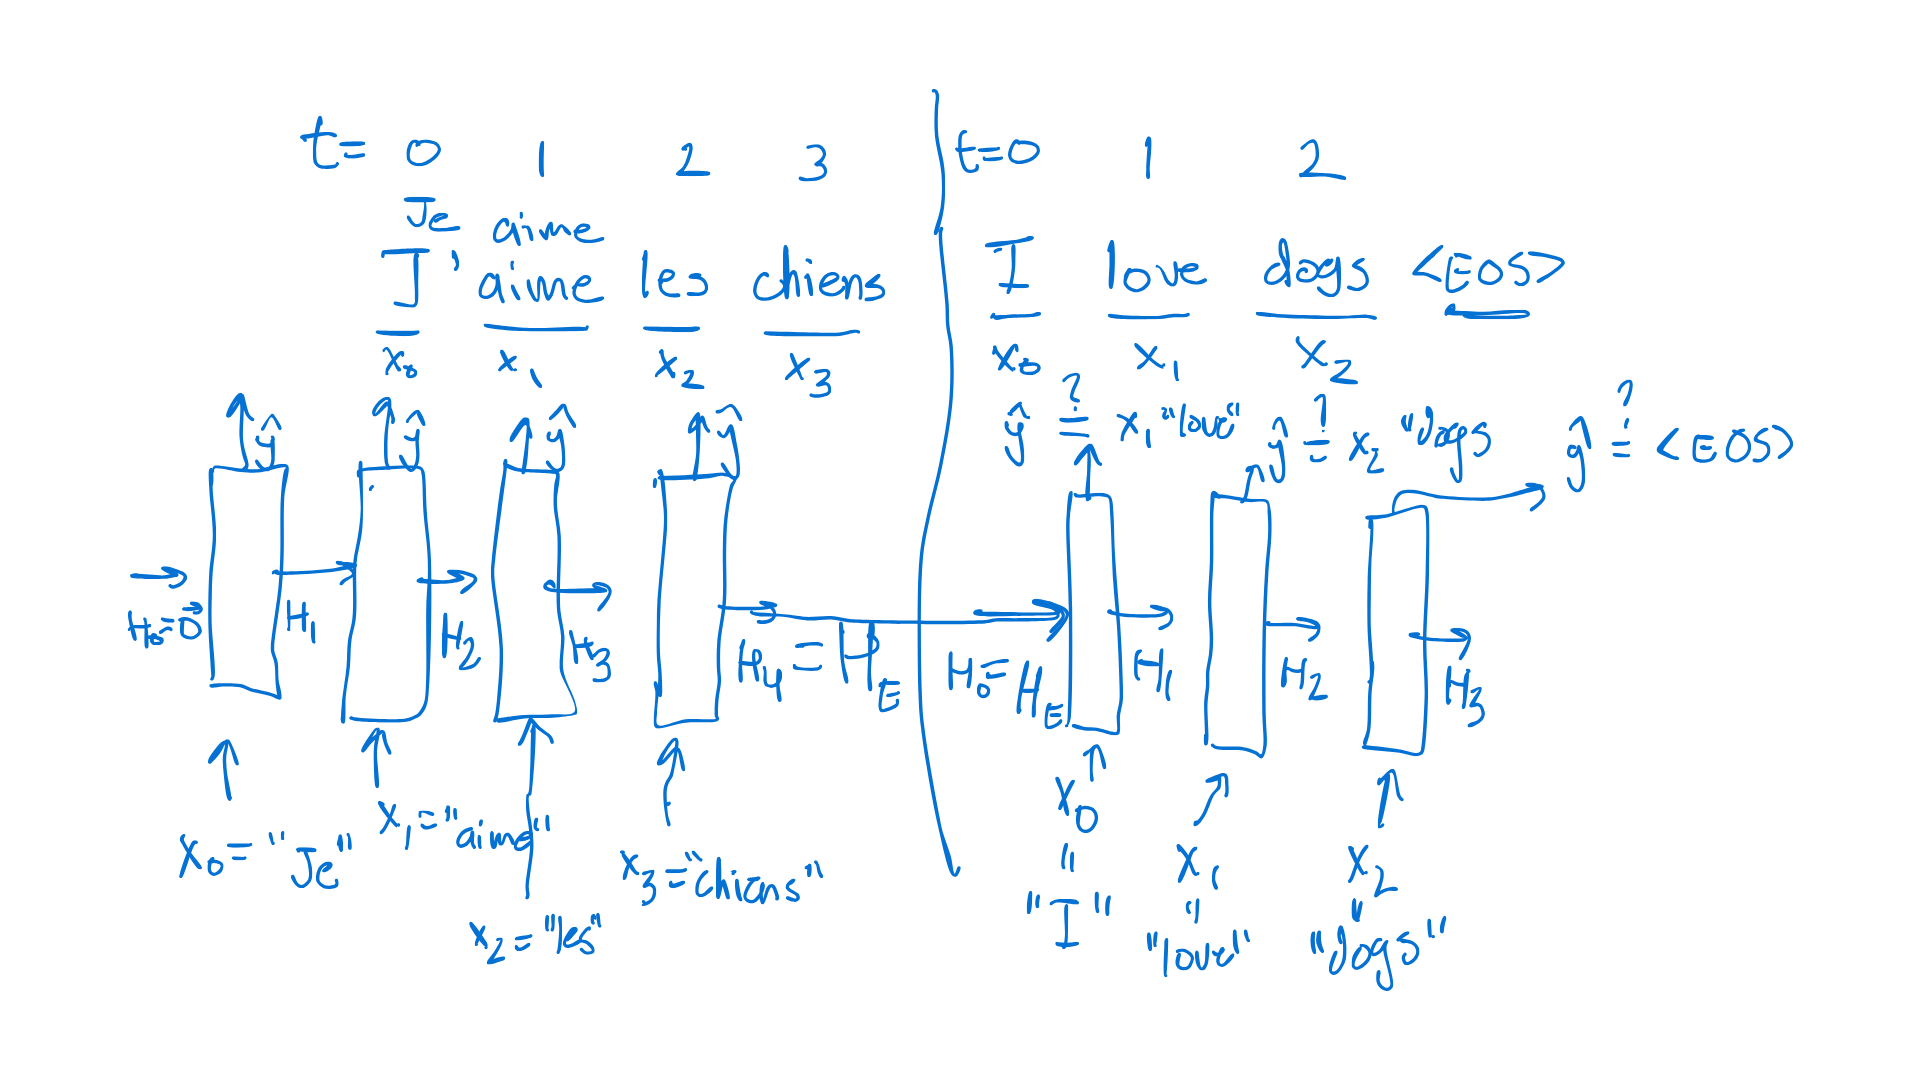 t= 0 1 2 3
Je aime
J' aime les chiens
x₀ x₁ x₂ x₃
ŷ ŷ ŷ ŷ
H₀=0⃗ H₁ H₂ H₃ H₄ = H_E
x₀ = "Je" x₁ = "aime"
x₂ = "les" x₃ = "chiens"
t=0 1 2
I love dogs <EOS>
x₀ x₁ x₂
ŷ ≟ x₁ "love" ŷ ≟ x₂ "dogs ŷ ≟ <EOS>
H₀ = H_E H₁ H₂ H₃
x₀ x₁ x₂
= = =
"I" "love" "dogs"